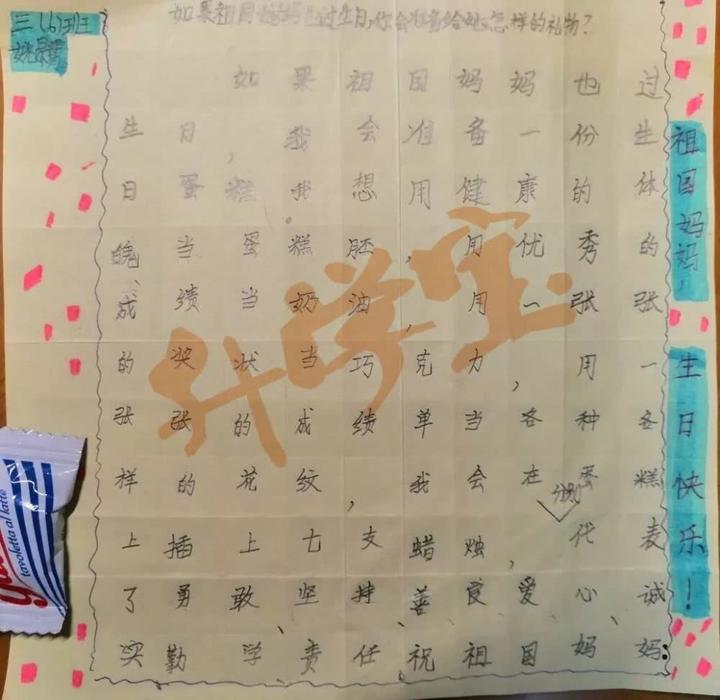 三(6)班
如果祖国妈妈也过生日,你会准备给她怎样的礼物?
如果祖国妈妈也过
生日,我会准备一份生
日蛋糕。我想用健康的体
魄当蛋糕胚,用优秀的
成绩当奶油,用一张张
的奖状当巧克力,用一
张张的成绩单当各种各
样的花纹,我会在蛋糕
上插上七支蜡烛,分别代表
了勇敢、坚持、善良、爱心、诚
实、勤学、责任祝祖国妈妈:
祖国妈妈,生日快乐!
升学宝
tavoletta al latte